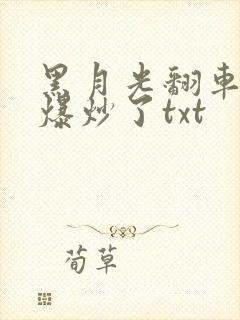 黑月光翻車
爆炒了txt
荀草